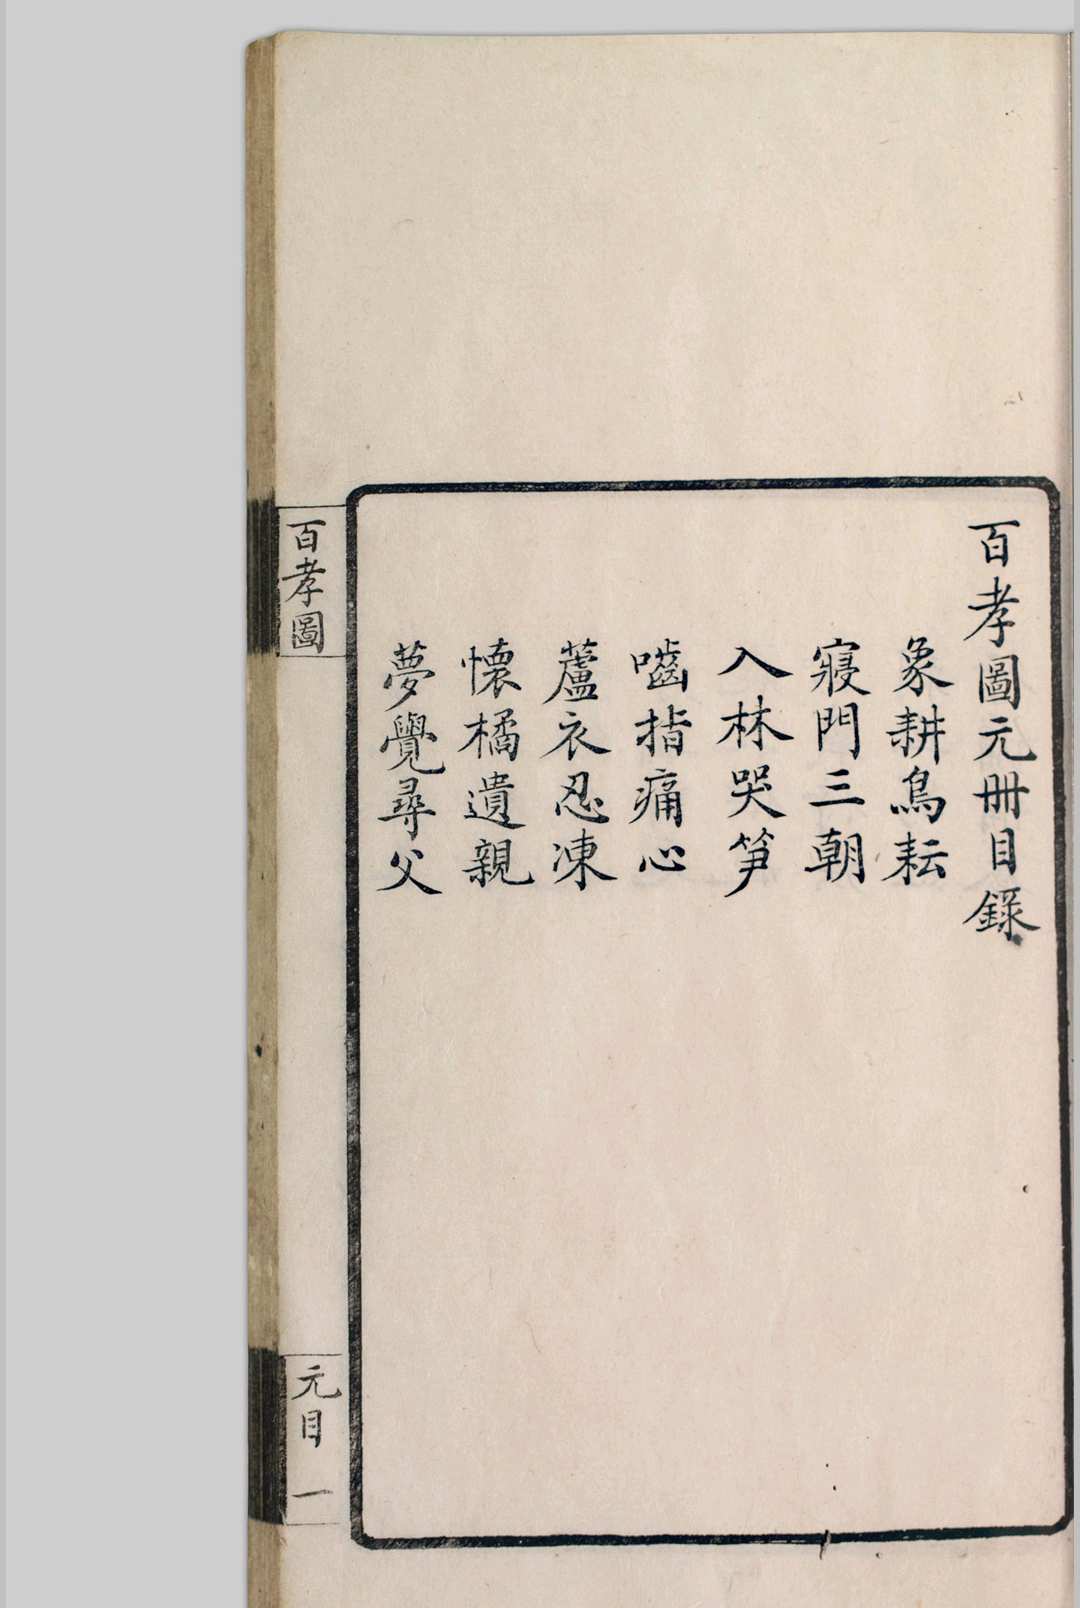 百孝圖元冊目錄
象耕鳥耘
寢門三朝
入林哭笋
嚙指痛心
蘆衣忍凍
懷橘遺親
夢覺尋父
百孝圖
元目 一